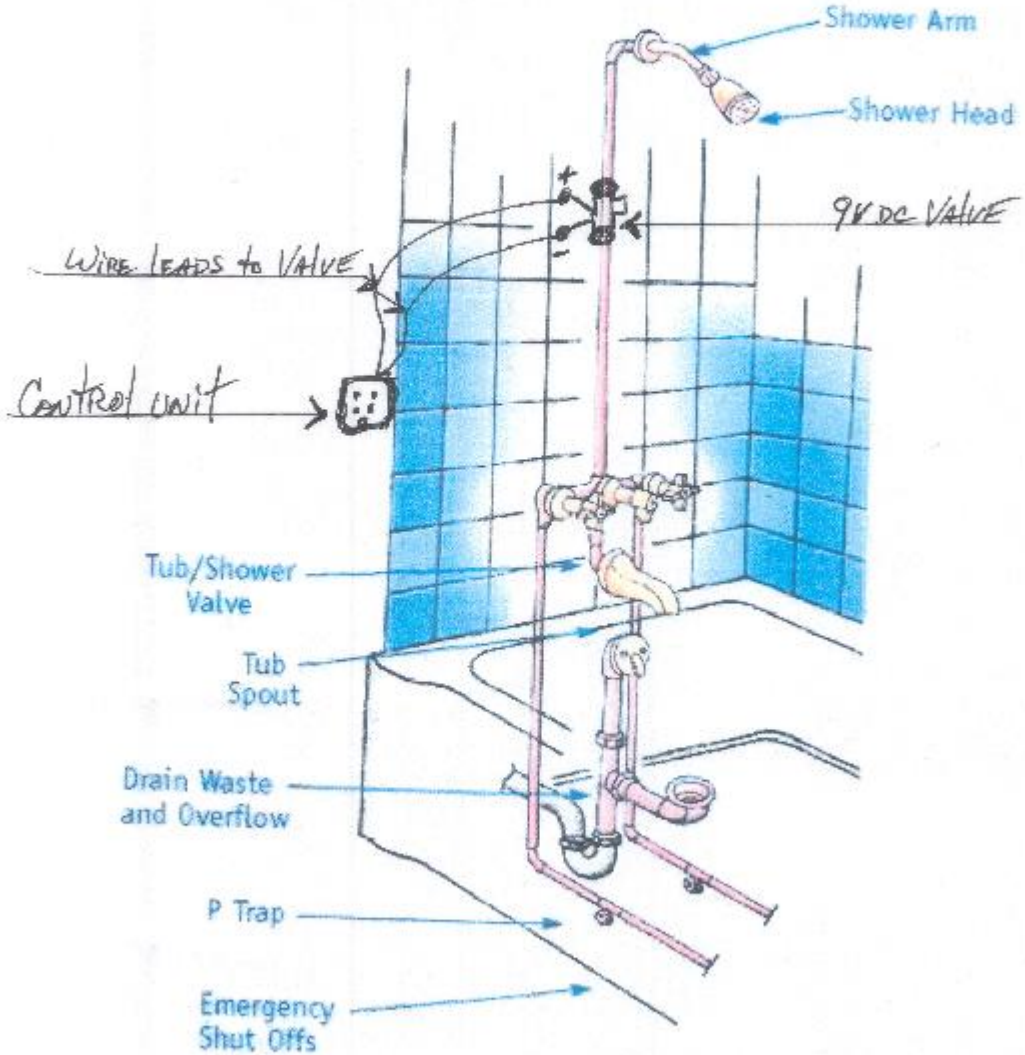 Shower Arm
Shower Head
+
9V DC VALVE
-
WIRE LEADS to VALVE
CONTROL UNIT
Tub/Shower
Valve
Tub
Spout
Drain Waste
and Overflow
P Trap
Emergency
Shut Offs